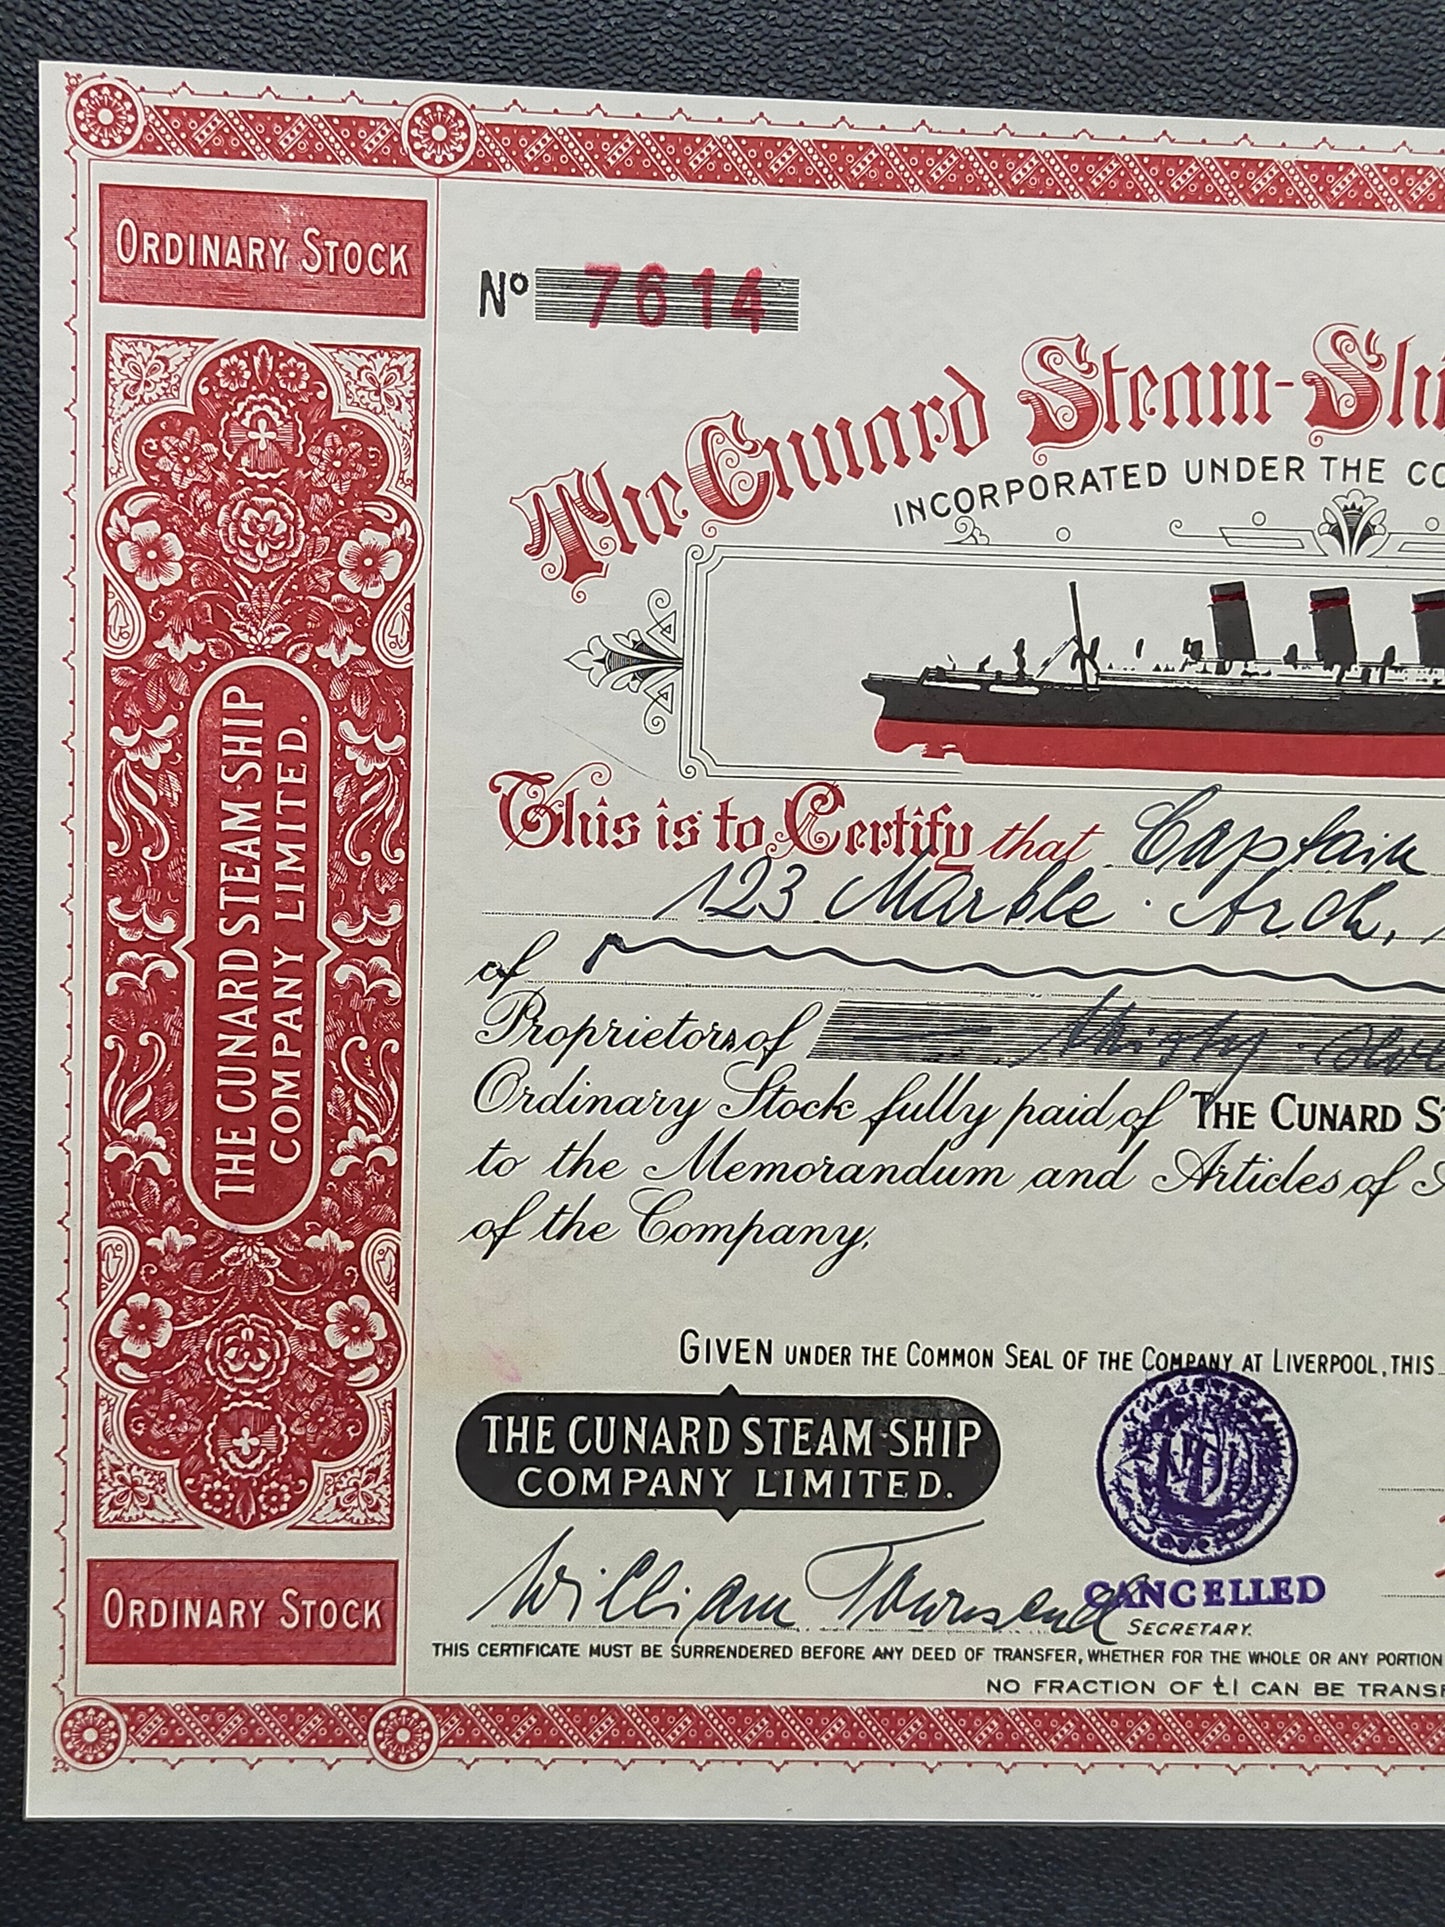 ORDINARY STOCK
Nº 7614
The Cunard Steam-Shi
INCORPORATED UNDER THE CO
THE CUNARD STEAM-SHIP
COMPANY LIMITED.
This is to Certify that Captain
123 Marble Arch,
of
Proprietor of Thirty
Ordinary Stock fully paid of THE CUNARD S
to the Memorandum and Articles of A
of the Company.
GIVEN UNDER THE COMMON SEAL OF THE COMPANY AT LIVERPOOL, THIS
THE CUNARD STEAM-SHIP
COMPANY LIMITED.
CANCELLED
William Townsend
SECRETARY.
ORDINARY STOCK
THIS CERTIFICATE MUST BE SURRENDERED BEFORE ANY DEED OF TRANSFER, WHETHER FOR THE WHOLE OR ANY PORTION
NO FRACTION OF £1 CAN BE TRANSF